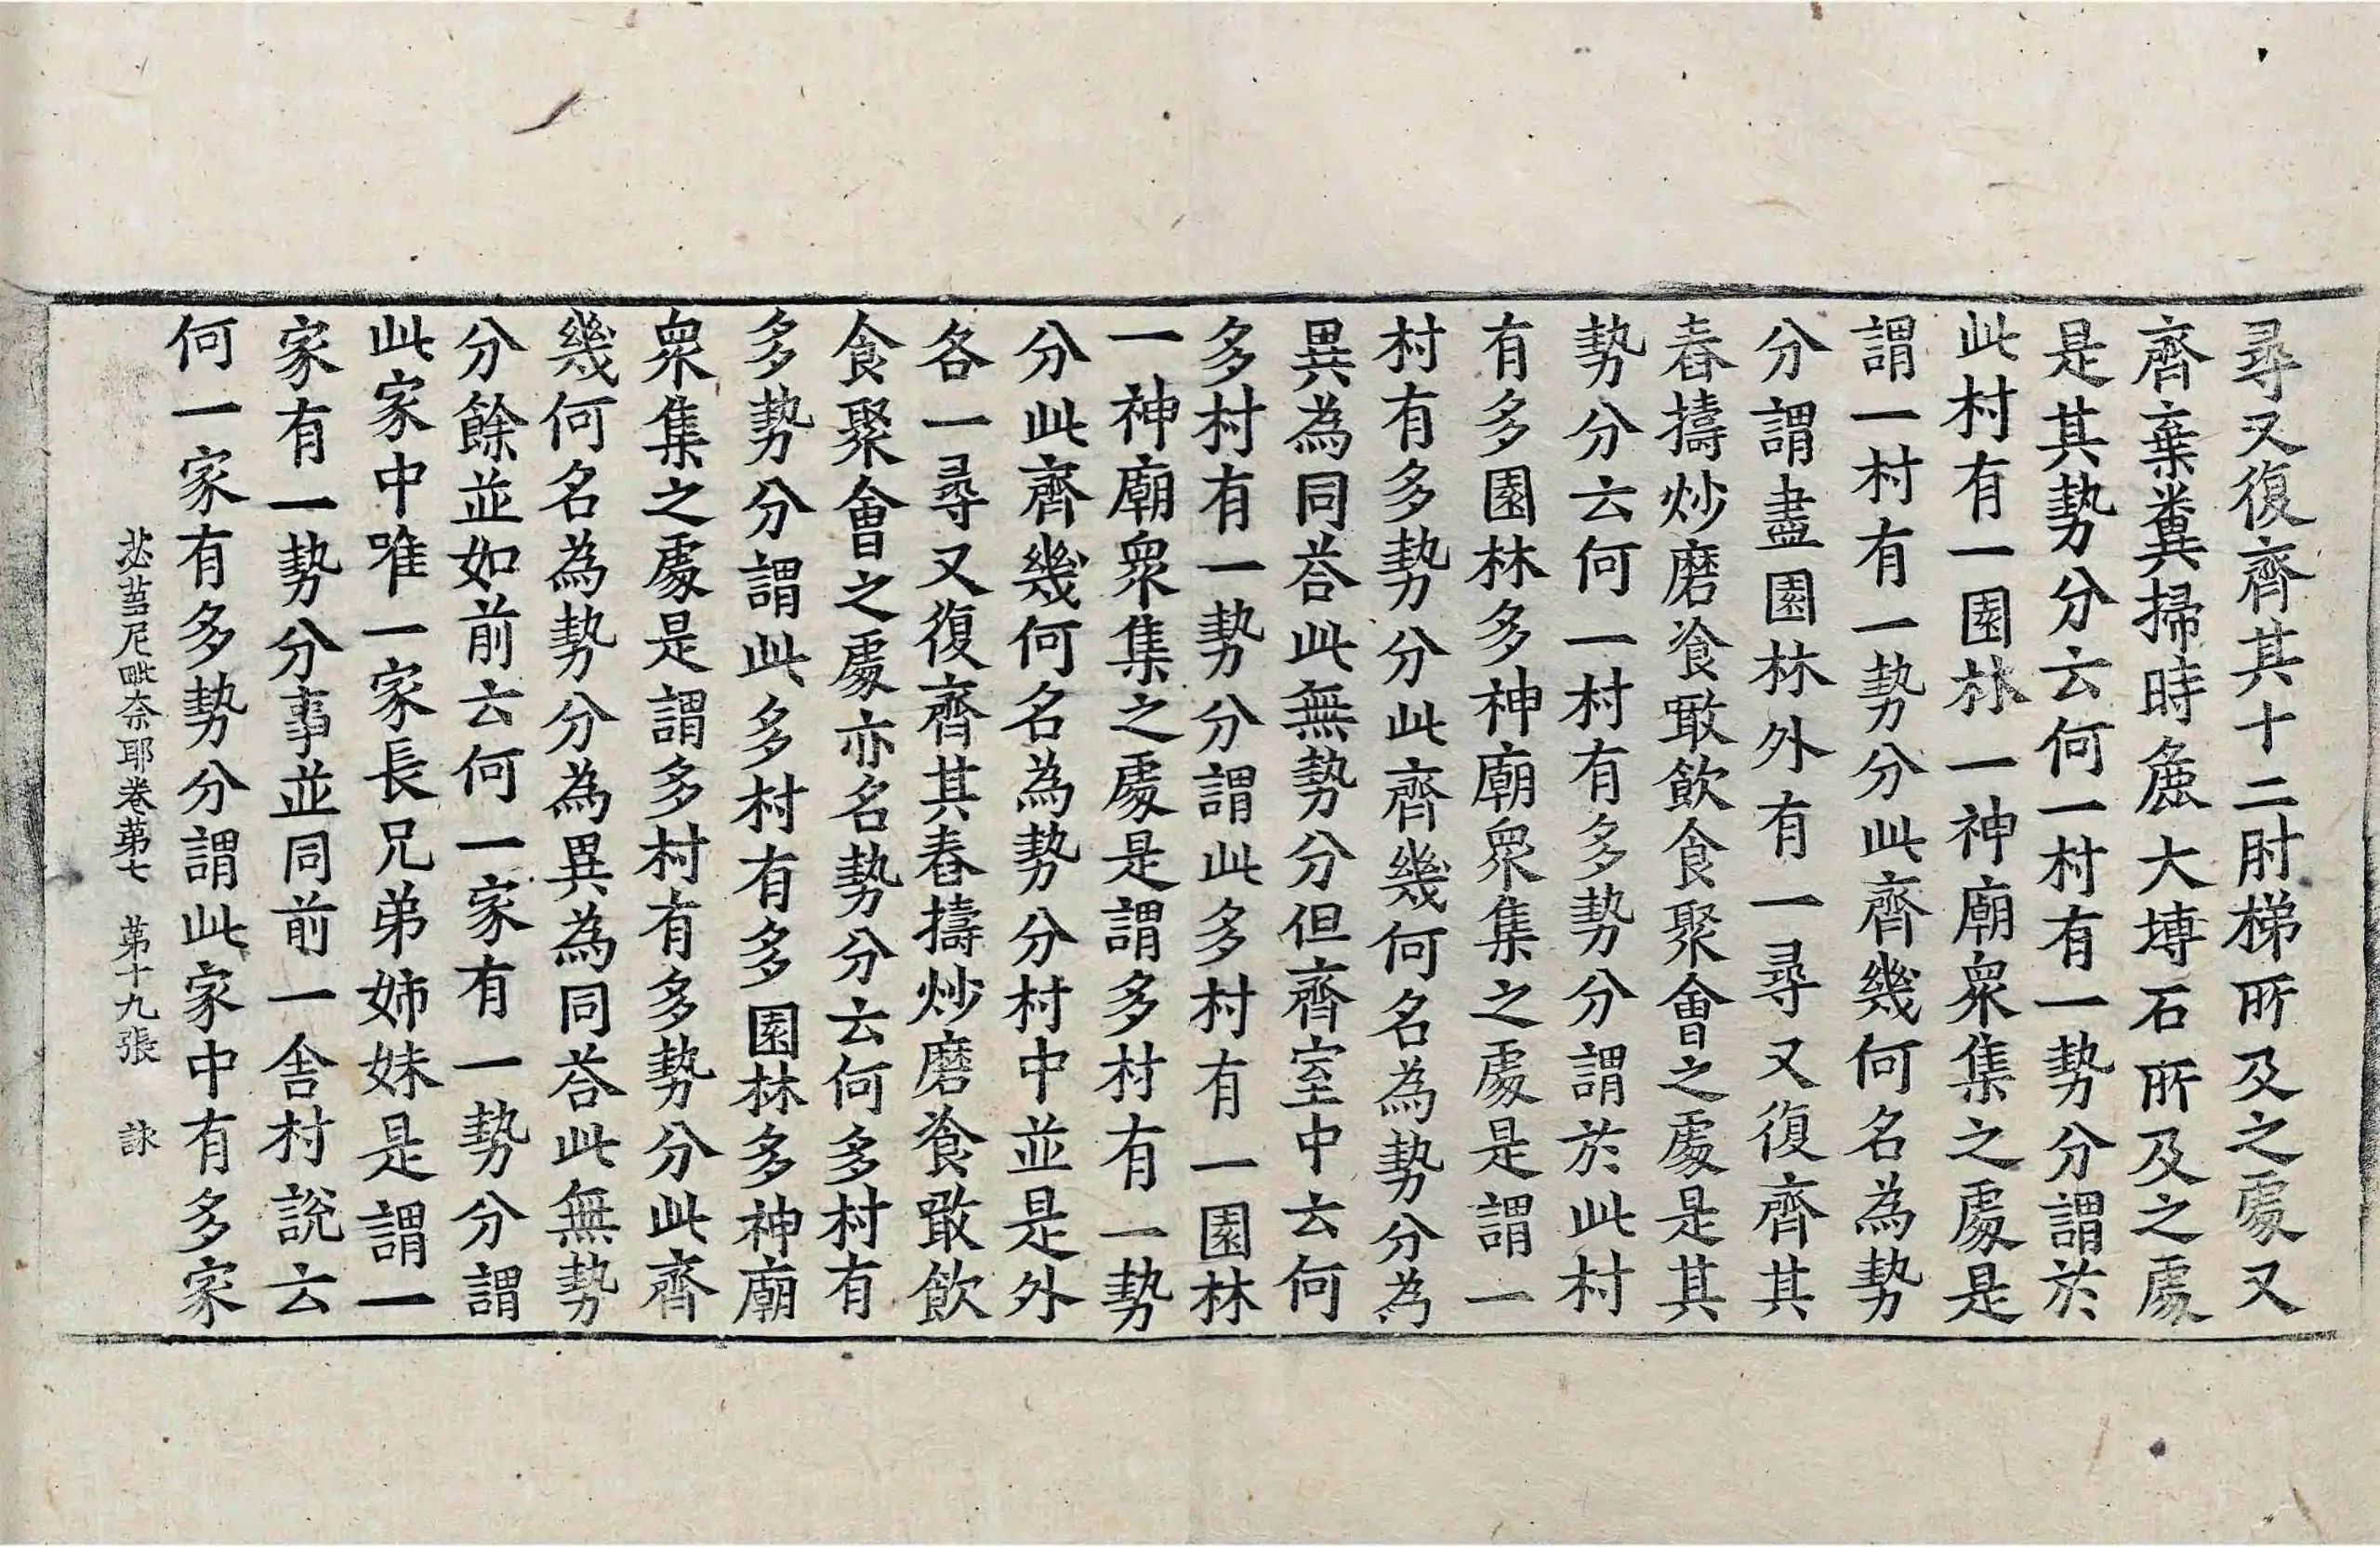 尋又復齊其十二肘梯所及之處又
齊棄糞掃時麁大塼石所及之處
是其勢分云何一村有一勢分謂於
此村有一園林一神廟衆集之處是
謂一村有一勢分此齊幾何名為勢
分謂盡園林外有一尋又復齊其
舂擣炒磨飡噉飲食聚會之處是其
勢分云何一村有多勢分謂於此村
有多園林多神廟衆集之處是謂一
村有多勢分此齊幾何名為勢分為
異為同荅此無勢分但齊室中云何
多村有一勢分謂此多村有一園林
一神廟衆集之處是謂多村有一勢
分此齊幾何名為勢分村中並是外
各一尋又復齊其舂擣炒磨飡噉飲
食聚會之處亦名勢分云何多村有
多勢分謂此多村有多園林多神廟
衆集之處是謂多村有多勢分此齊
幾何名為勢分為異為同荅此無勢
分餘並如前云何一家有一勢分謂
此家中唯一家長兄弟姉妹是謂一
家有一勢分事並同前一舍村說云
何一家有多勢分謂此家中有多家
苾蒭尼毗奈耶卷第七 第十九張 詠